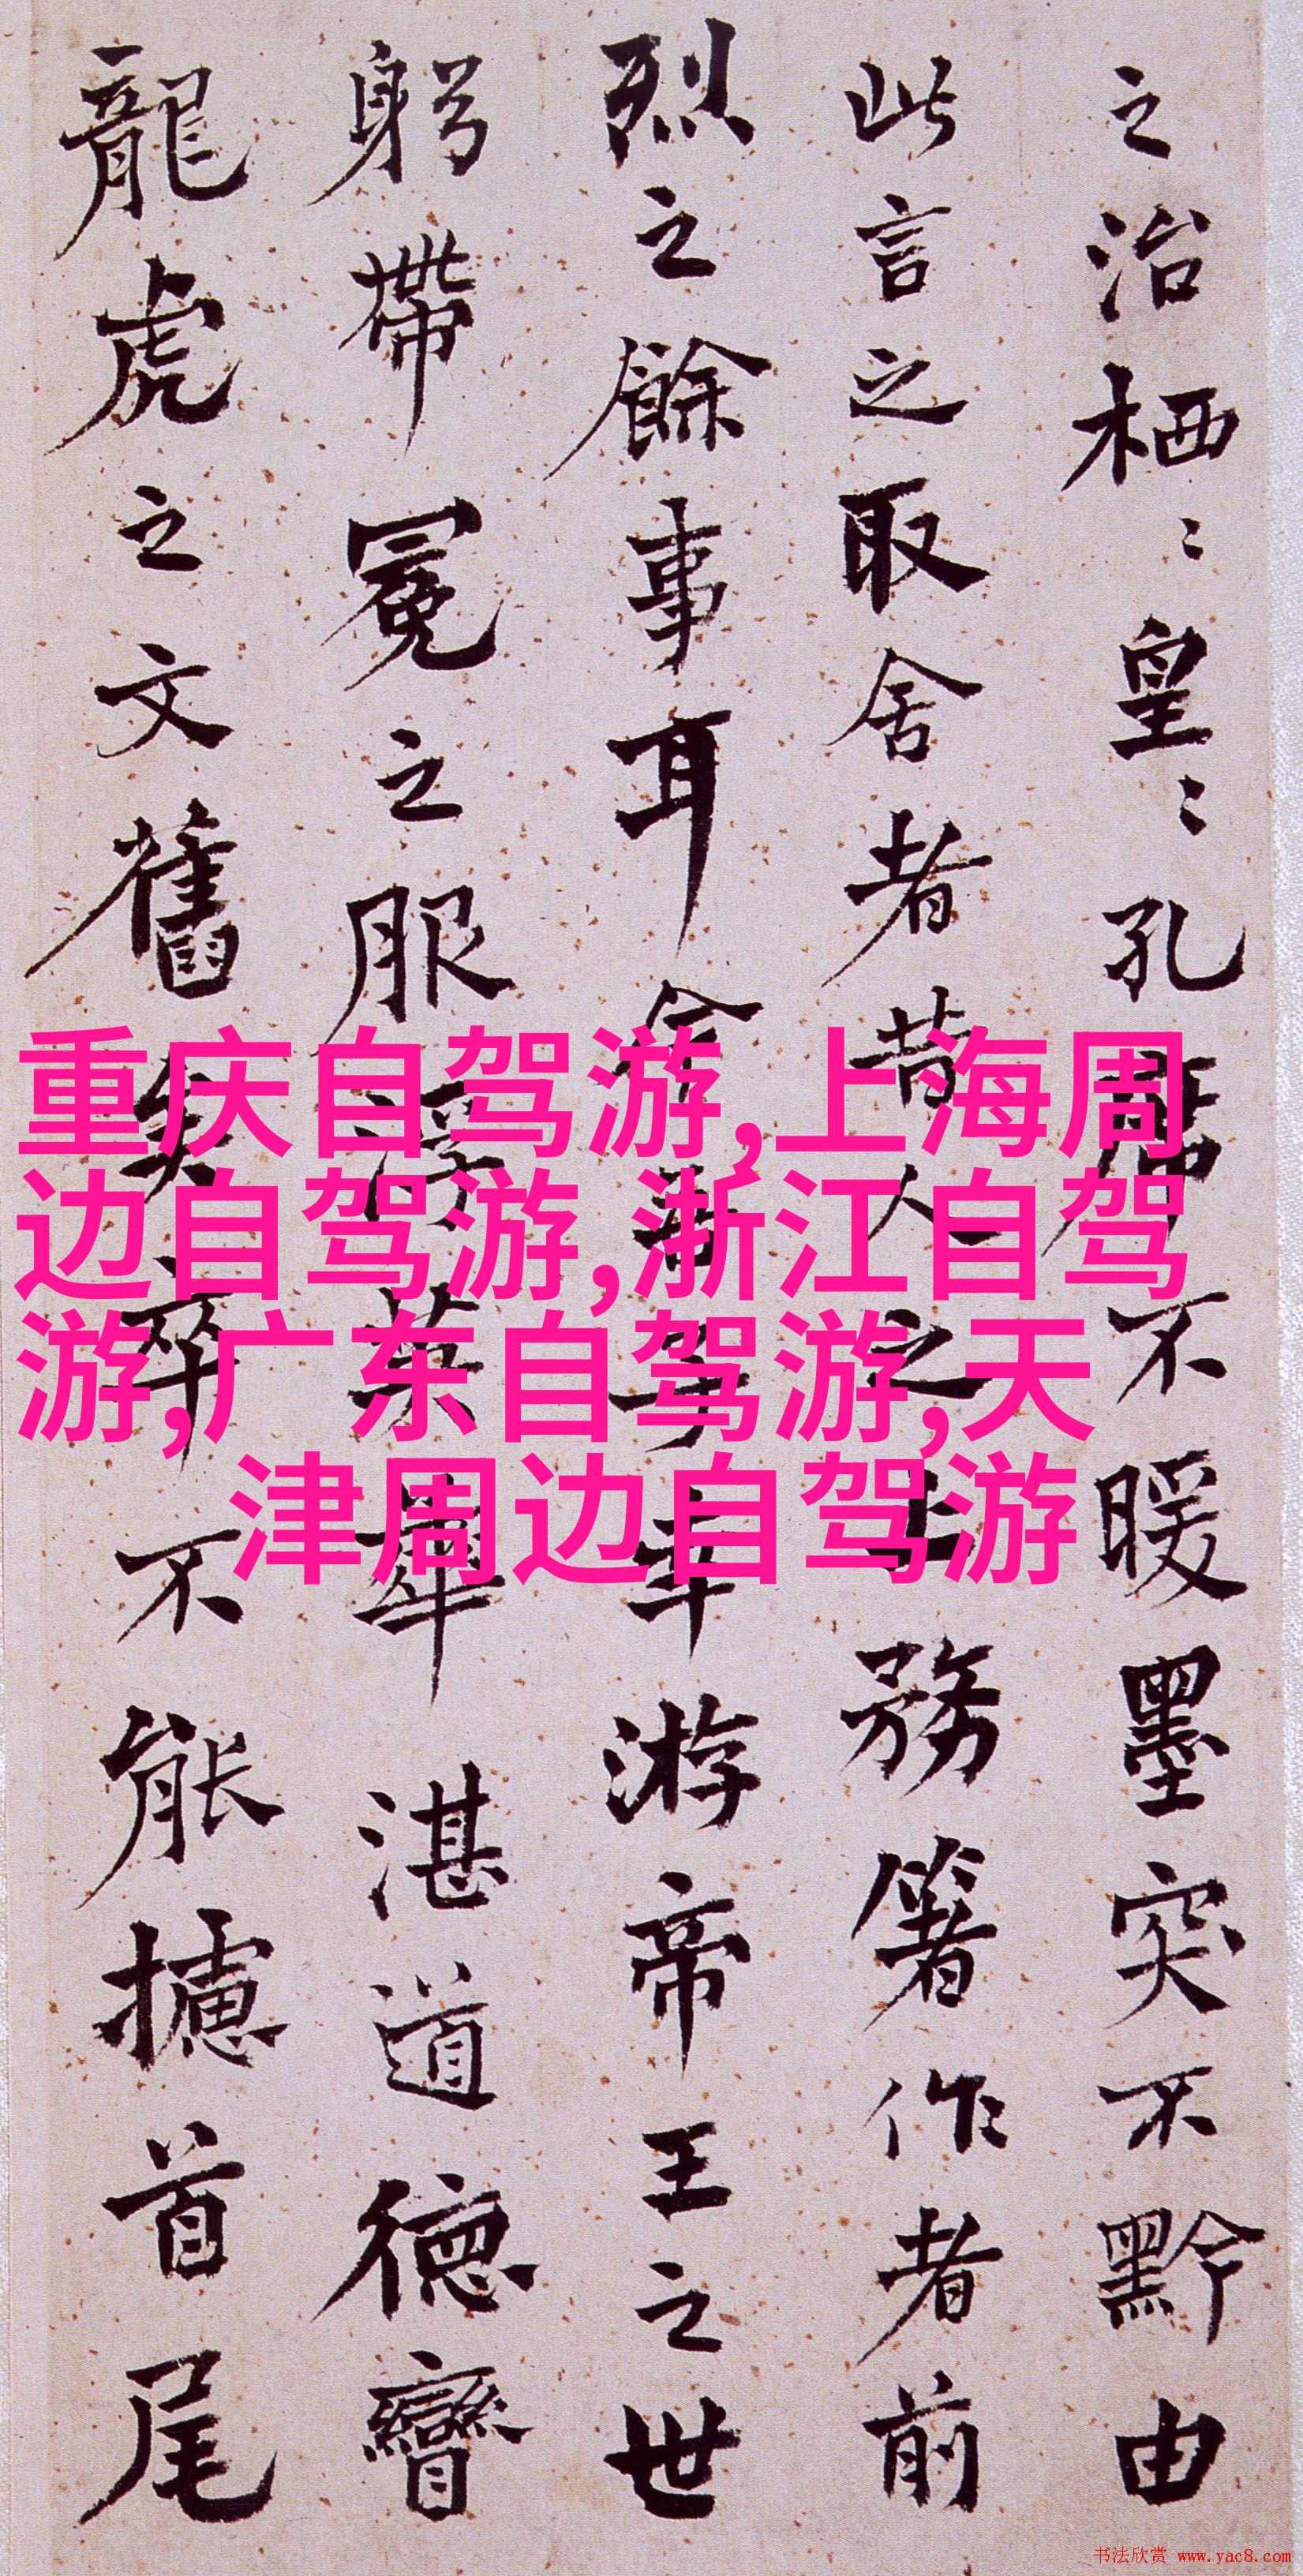 之治栖〻皇〻孔席不暖墨突不黔由
此言之取舍者昔人之上務箸作者前
烈之餘事耳今吾子幸游帝王之世
躬帶冕之服浮英華湛道德矕
龍虎之文舊矣卒不能攄首尾
重庆自驾游,上海周
边自驾游,浙江自驾
游,广东自驾游,天
津周边自驾游
书法欣赏 www.yac8.com